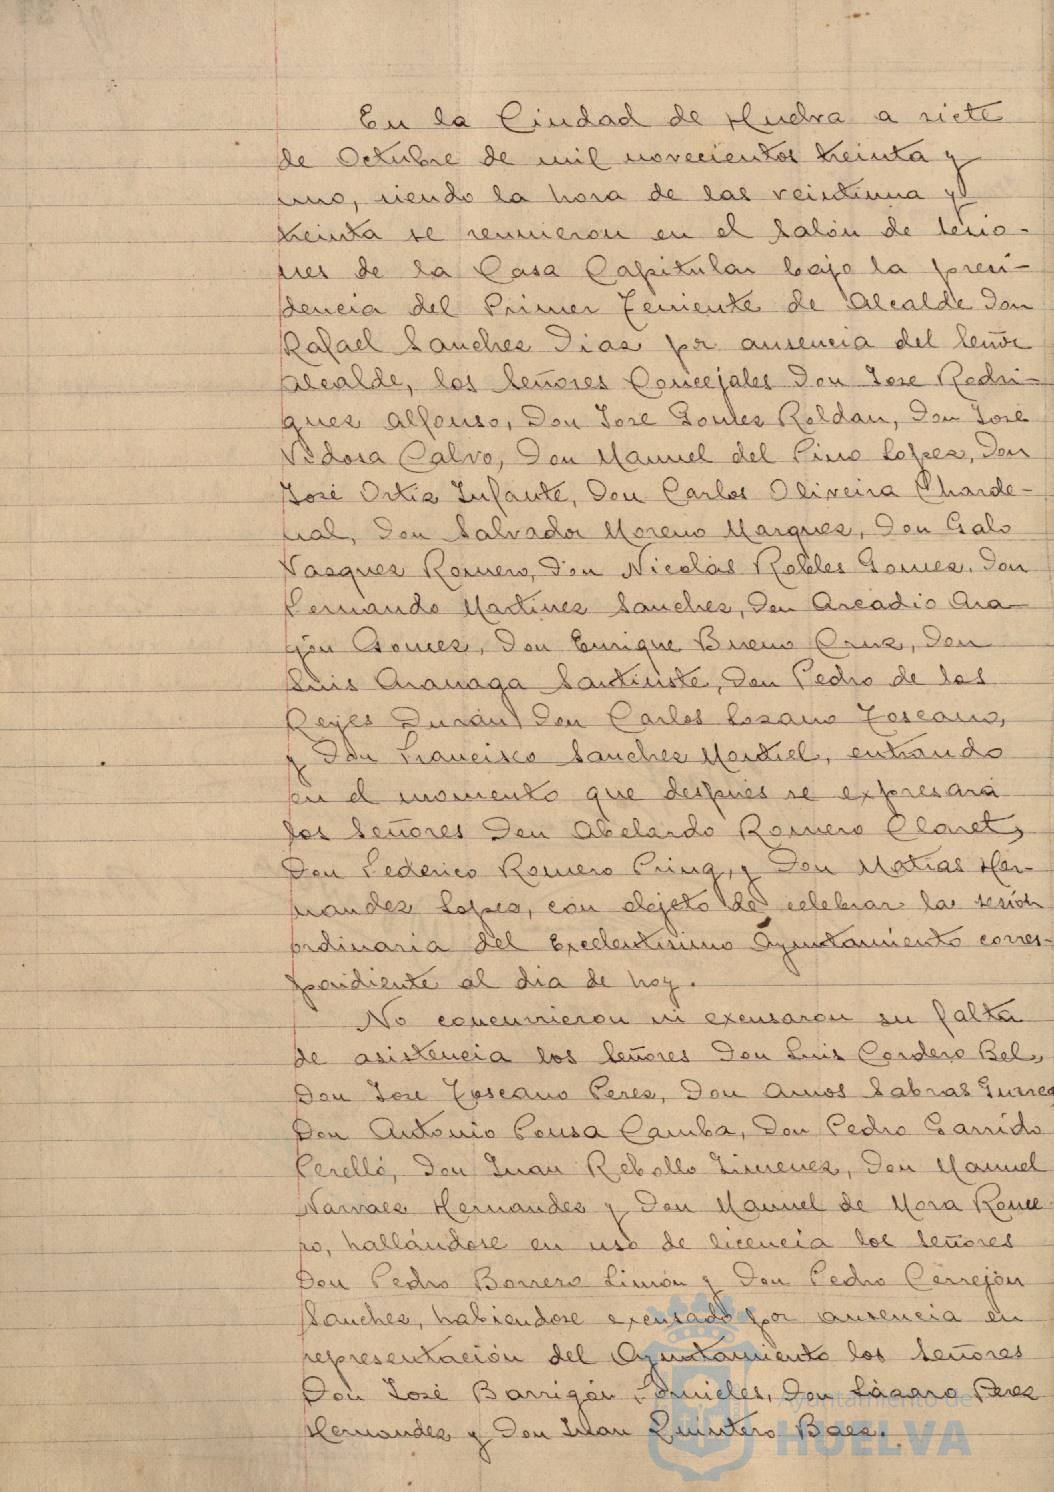 En la Ciudad de Huelva a siete
de Octubre de mil novecientos treinta y
uno, siendo la hora de las veintiuna y
treinta se reunieron en el Salón de Sesio-
nes de la Casa Capitular bajo la presi-
dencia del Primer Teniente de Alcalde Don
Rafael Sanchez Diaz por ausencia del Señor
Alcalde, los Señores Concejales Don Jose Rodri-
guez Alfonso, Don Jose Gomez Roldan, Don José
Vidosa Calvo, Don Manuel del Pino Lopez, Don
José Ortiz Infante, Don Carlos Oliveira Charde-
nal, Don Salvador Moreno Marquez, Don Galo
Vazquez Romero, Don Nicolás Robles Gomez, Don
Fernando Martinez Sanchez, Don Arcadio Ara-
gón Gomez, Don Enrique Bueno Cruz, Don
Luis Aranaga Santiuste, Don Pedro de los
Reyes Durán, Don Carlos Lozano Toscano,
y Don Francisco Sanchez Montiel, entrando
en el momento que después se expresará
los Señores Don Abelardo Romero Claret,
Don Federico Romero Pring, y Don Matias Her-
nandez Lopez, con objeto de celebrar la sesión
ordinaria del Excelentisimo Ayuntamiento corres-
pondiente al dia de hoy.
No concurrieron ni excusaron su falta
de asistencia los Señores Don Luis Cordero Bel,
Don Jose Toscano Perez, Don Amos Sabras Gurrea
Don Antonio Pousa Camba, Don Pedro Garrido
Perelló, Don Juan Rebollo Jimenez, Don Manuel
Narvaez Hernandez y Don Manuel de Mora Rome-
ro, hallándose en uso de licencia los Señores
Don Pedro Borrero Limón y Don Pedro Cerrejón
Sanchez, habiendose excusado por ausencia en
representación del Ayuntamiento los Señores
Don José Barrigón Fornieles, Don Lázaro Perez
Hernandez y Don Juan Quintero Baez.
Ayuntamiento de
HUELVA